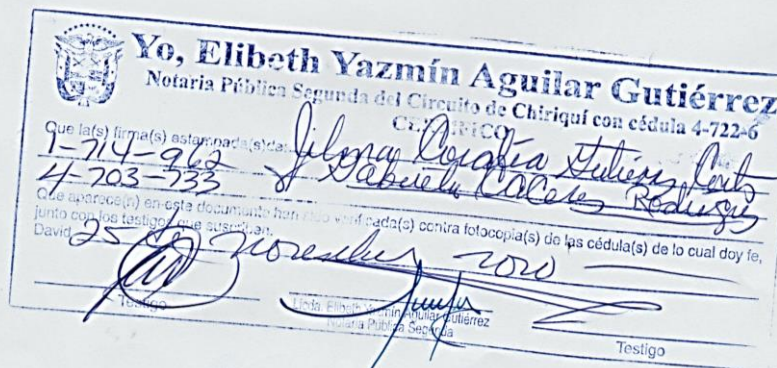 Yo, Elibeth Yazmín Aguilar Gutiérrez
Notaria Pública Segunda del Circuito de Chiriquí con cédula 4-722-6
CERTIFICO
Que la(s) firma(s) estampada(s) de: Gutiérrez
1-714-962
4-203-733 y Gabriela Cáceres Rodríguez
Que aparece(n) en este documento han sido verificada(s) contra fotocopia(s) de las cédula(s) de lo cual doy fe,
junto con los testigos que suscriben.
David 25 de noviembre 2020
Testigo
Licda. Elibeth Yazmín Aguilar Gutiérrez
Notaria Pública Segunda
Testigo